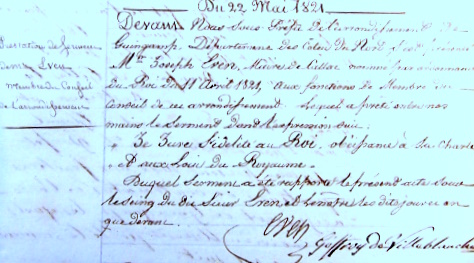 Du 22 Mai 1821
Prestation de serment
de Mr Even
membre du Conseil
de l'arrondissement
Devant Nous Sous Préfet de l'arrondissement de
Guingamp, Département des Côtes du Nord, s'est présenté
Mr. Joseph Even, Maire de Callac nommé par ordonnance
du Roi du 11 Avril 1821, aux fonctions de Membre du
Conseil de cet arrondissement. Lequel a prêté entre nos
mains le serment dont l'expression suit:
" Je Jure fidélité au Roi, obéissance à la Charte
" et aux Lois du Royaume.
Duquel serment a été rapporté le présent acte sous
le seing du dit Sieur Even et le nôtre les dits jour et an
que devant.
Even
Geffroy de Villeblanche